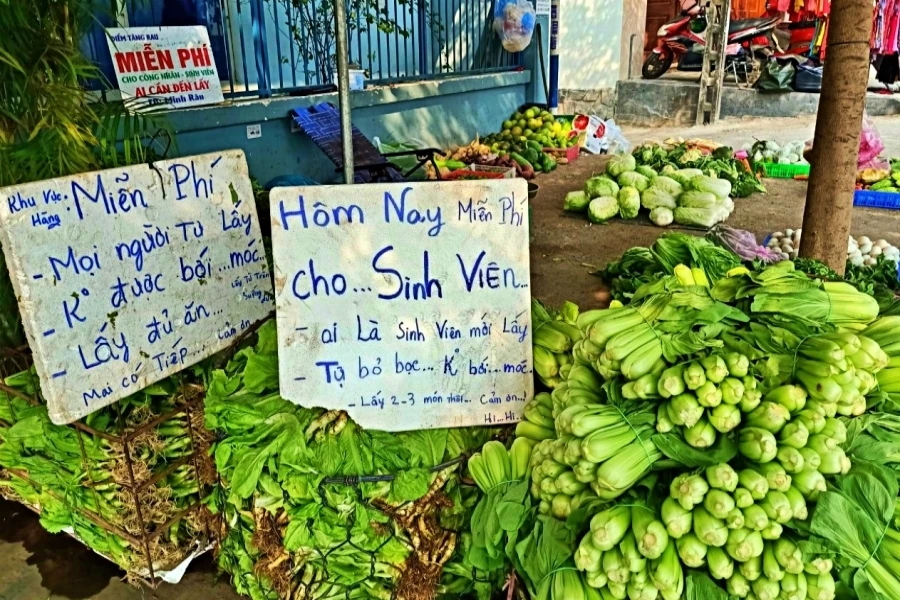 ĐIỂM TẶNG RAU
MIỄN PHÍ
CHO CÔNG NHÂN - SINH VIÊN
AI CẦN ĐẾN LẤY
Khu Vực
Hàng: Miễn Phí
- Mọi người Tự Lấy
- K° được bới...móc.
Lấy Từ Trên
- Lấy đủ ăn... cảm ơn
Mai có Tiếp...
Hôm Nay Miễn Phí
cho...Sinh Viên..
- ai Là Sinh Viên mới Lấy
- Tự bỏ bọc... K° bới...móc
- Lấy 2-3 món thôi.. cảm ơn..
Hi...Hi..